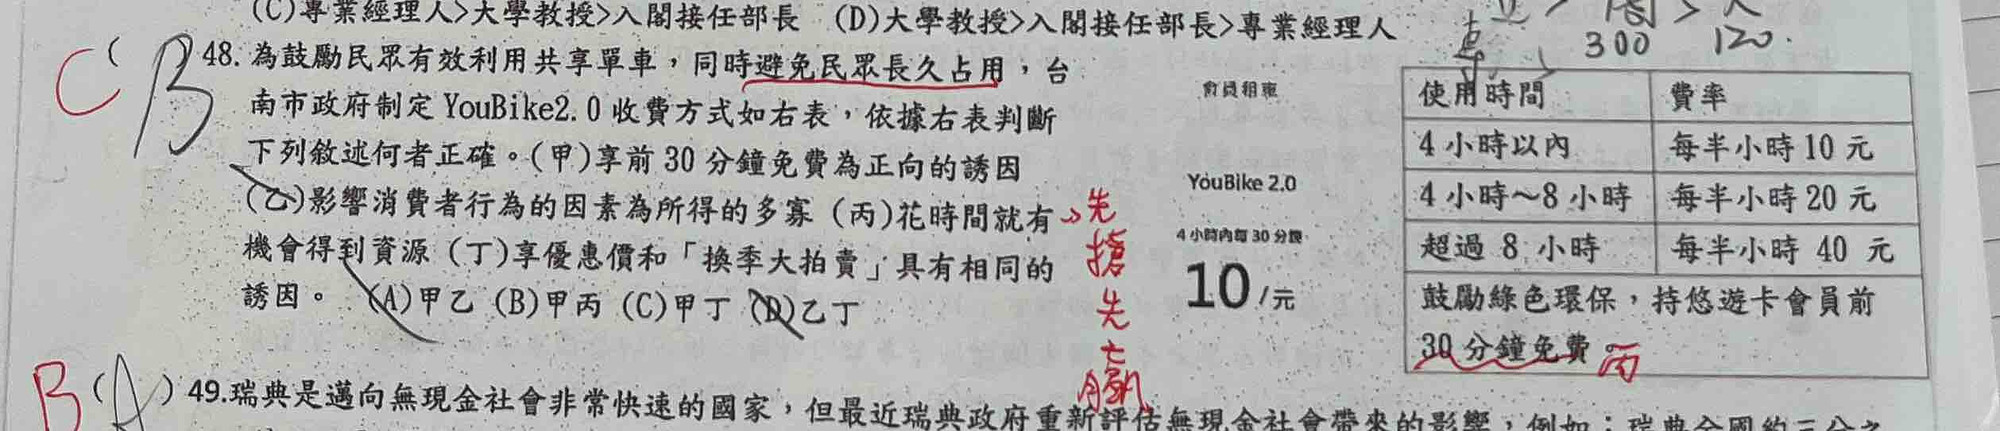 (C)專業經理人>大學教授>入閣接任部長 (D)大學教授>入閣接任部長>專業經理人
300 120.
C B 48. 為鼓勵民眾有效利用共享單車，同時避免民眾長久占用，台
南市政府制定 YouBike2.0 收費方式如右表，依據右表判斷
下列敘述何者正確。(甲)享前 30 分鐘免費為正向的誘因
(乙)影響消費者行為的因素為所得的多寡 (丙)花時間就有
機會得到資源 (丁)享優惠價和「換季大拍賣」具有相同的
誘因。 (A)甲乙 (B)甲丙 (C)甲丁 (D)乙丁
先搶先贏
會員租車
YouBike 2.0
4 小時內每 30 分鐘
10 /元
使用時間 費率
4 小時以內 每半小時 10 元
4 小時～8 小時 每半小時 20 元
超過 8 小時 每半小時 40 元
鼓勵綠色環保，持悠遊卡會員前
30 分鐘免費。 丙
B (A) 49.瑞典是邁向無現金社會非常快速的國家，但最近瑞典政府重新評估無現金社會帶來的影響，例如：瑞典全國約三分之